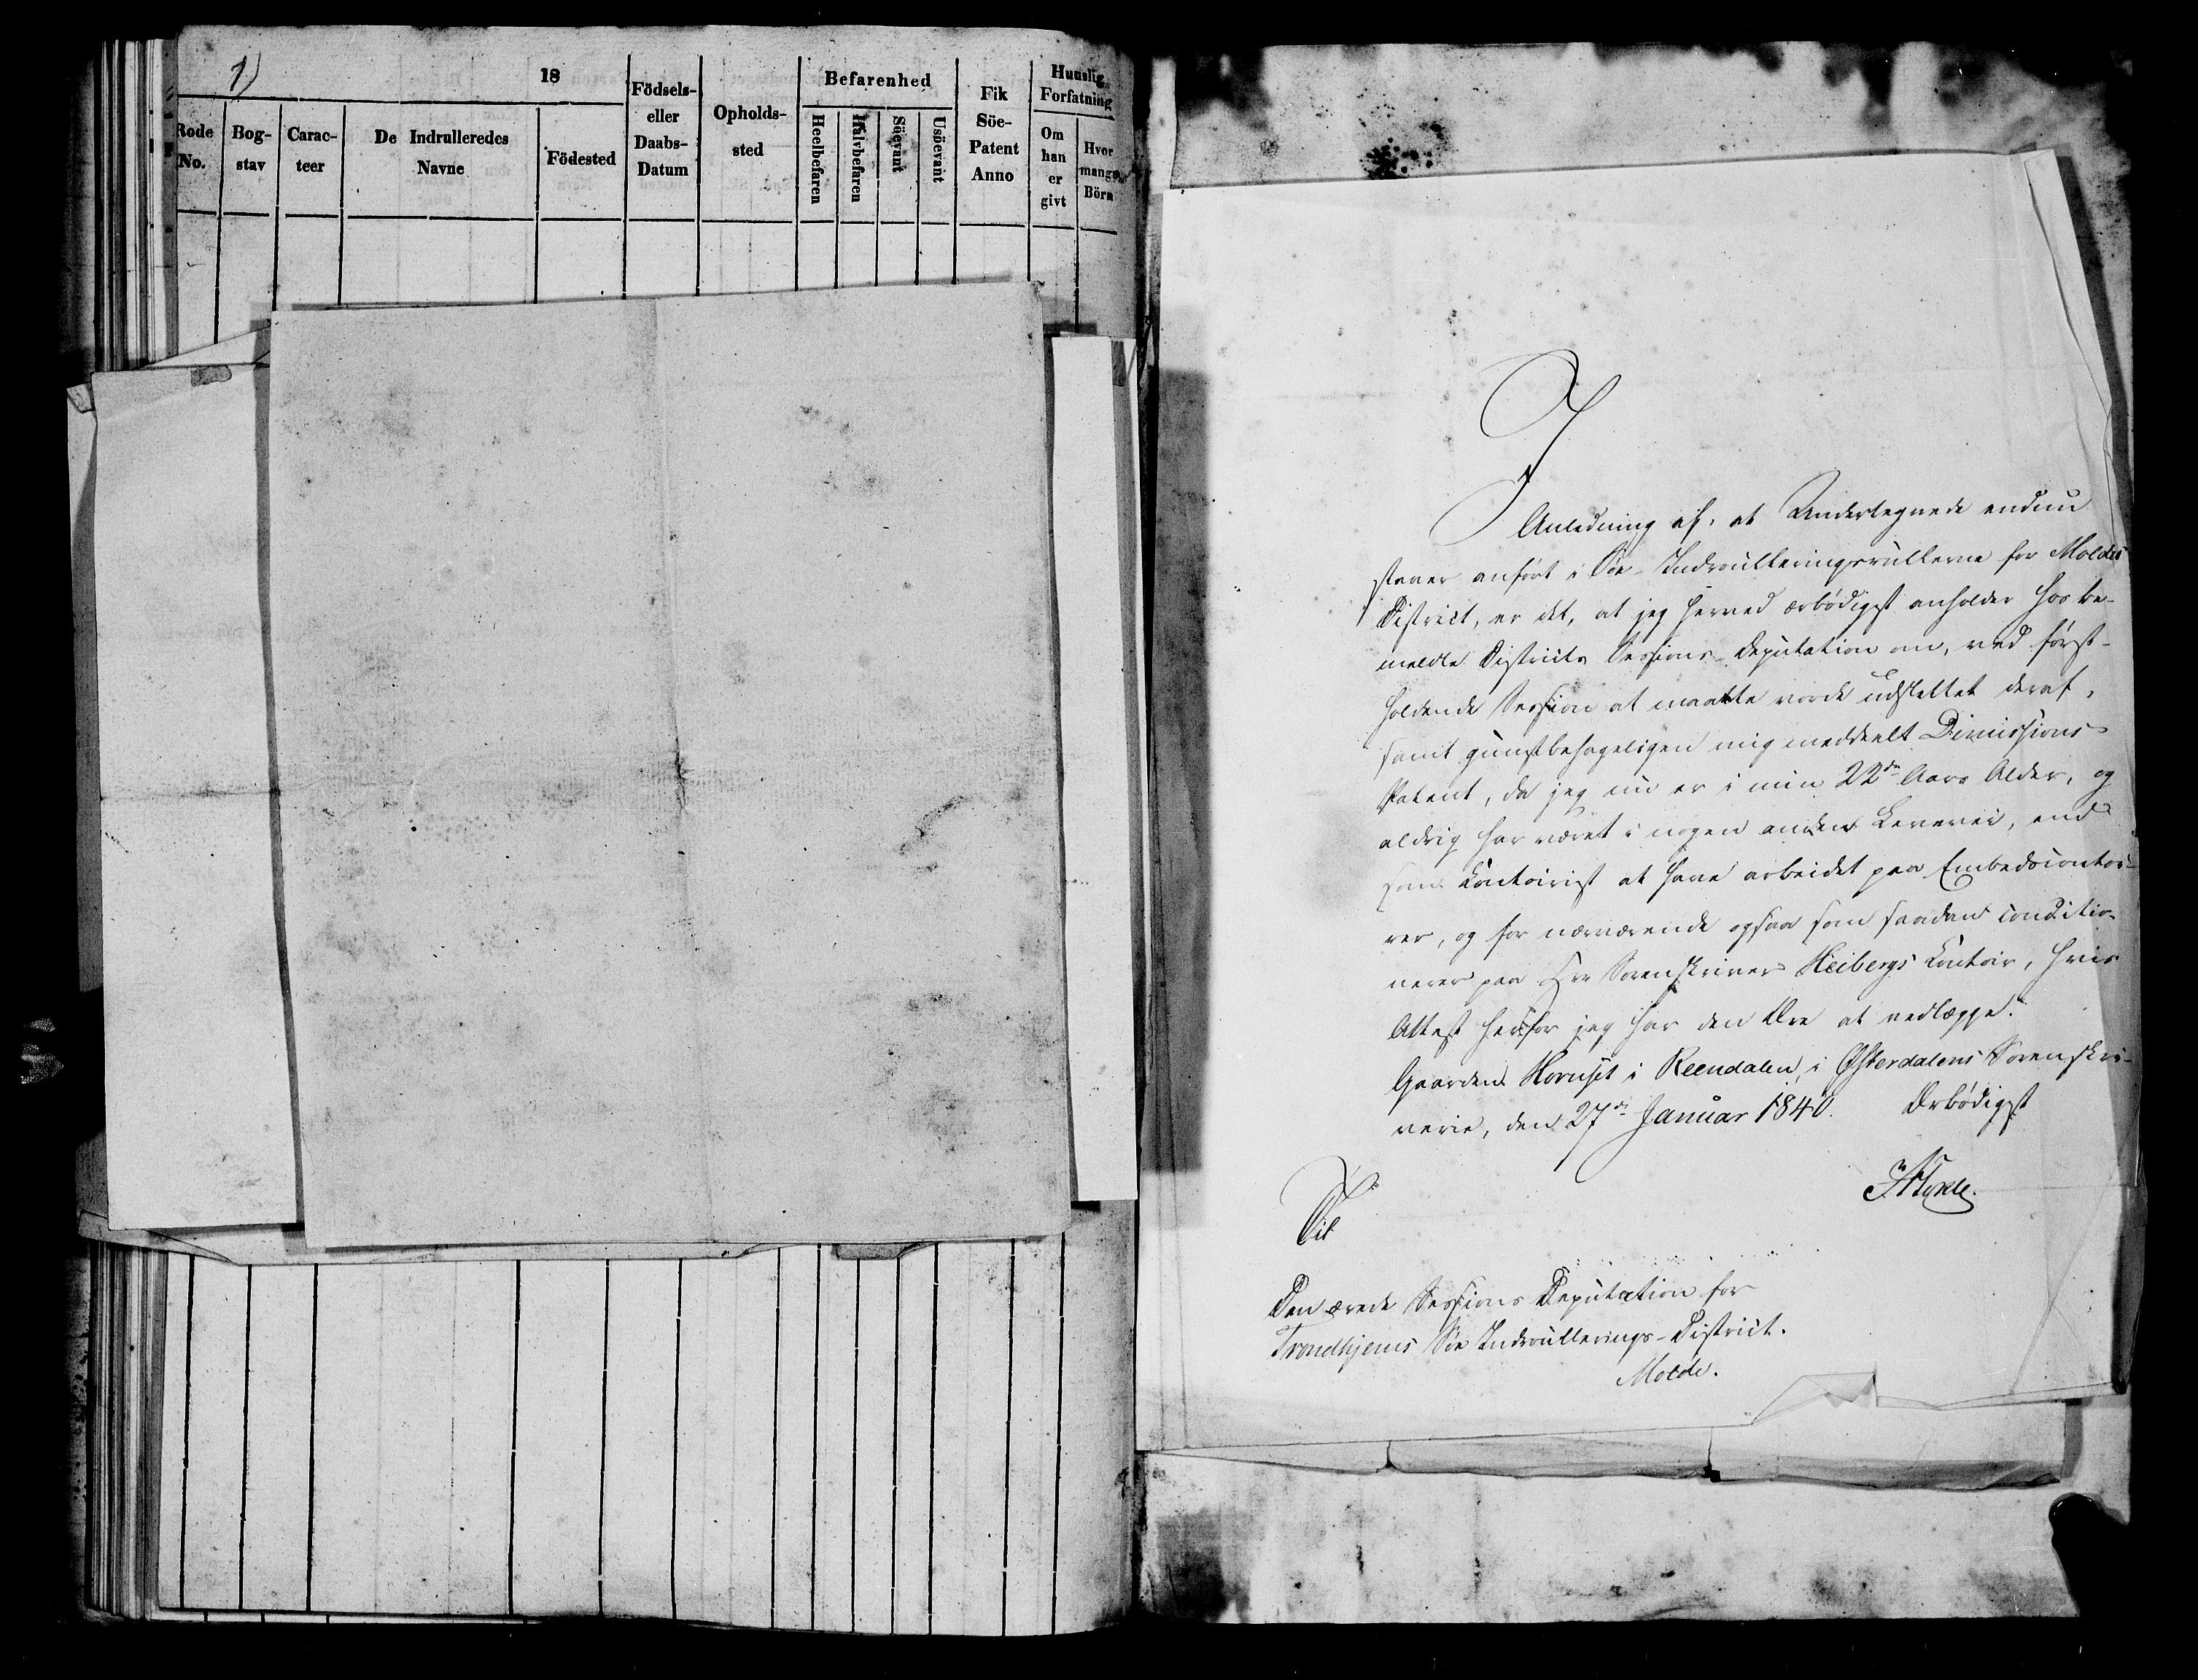 1)
18
Rode No.
Bog-stav
Carac-teer
De Indrulleredes Navne
Födested
Födsels- eller Daabs-Datum
Opholds-sted
Befarenhed
Heelbefaren
Halvbefaren
Söevant
Usöevant
Fik Söe-Patent Anno
Huuslig Forfatning
Om han er givt
Hvor mange Börn
I
Anledning af, at Undertegnede endnu
staaer anført i Søe-Indroulleringsrullerne for Molde
District, er det, at jeg herved ærbødigst anholder hos be-
meldte Districts Sessions-Deputation om, ved først-
holdende Session at maatte vorde udslettet deraf,
samt gunstbehageligen mig meddeelt Dimissions-
Patent, da jeg nu er i min 22de Aars Alder, og
aldrig har været i nogen anden Levevei, end
som Contoirist at have arbeidet paa Embedscontoi-
rer, og for nærværende ogsaa som saadan conditio-
nerer paa Hr Sorenskriver Heibergs Contoir, hvis
Attest herfor jeg har den Ære at vedlægge.
Gaarden Hornset i Reendalen, i Østerdalens Sorenskri-
verie, den 27de Januar 1840. Ærbødigst
Til
Den ærede Sessions Deputation for
Trondhjems Søe Indroullerings-District.
Molde.